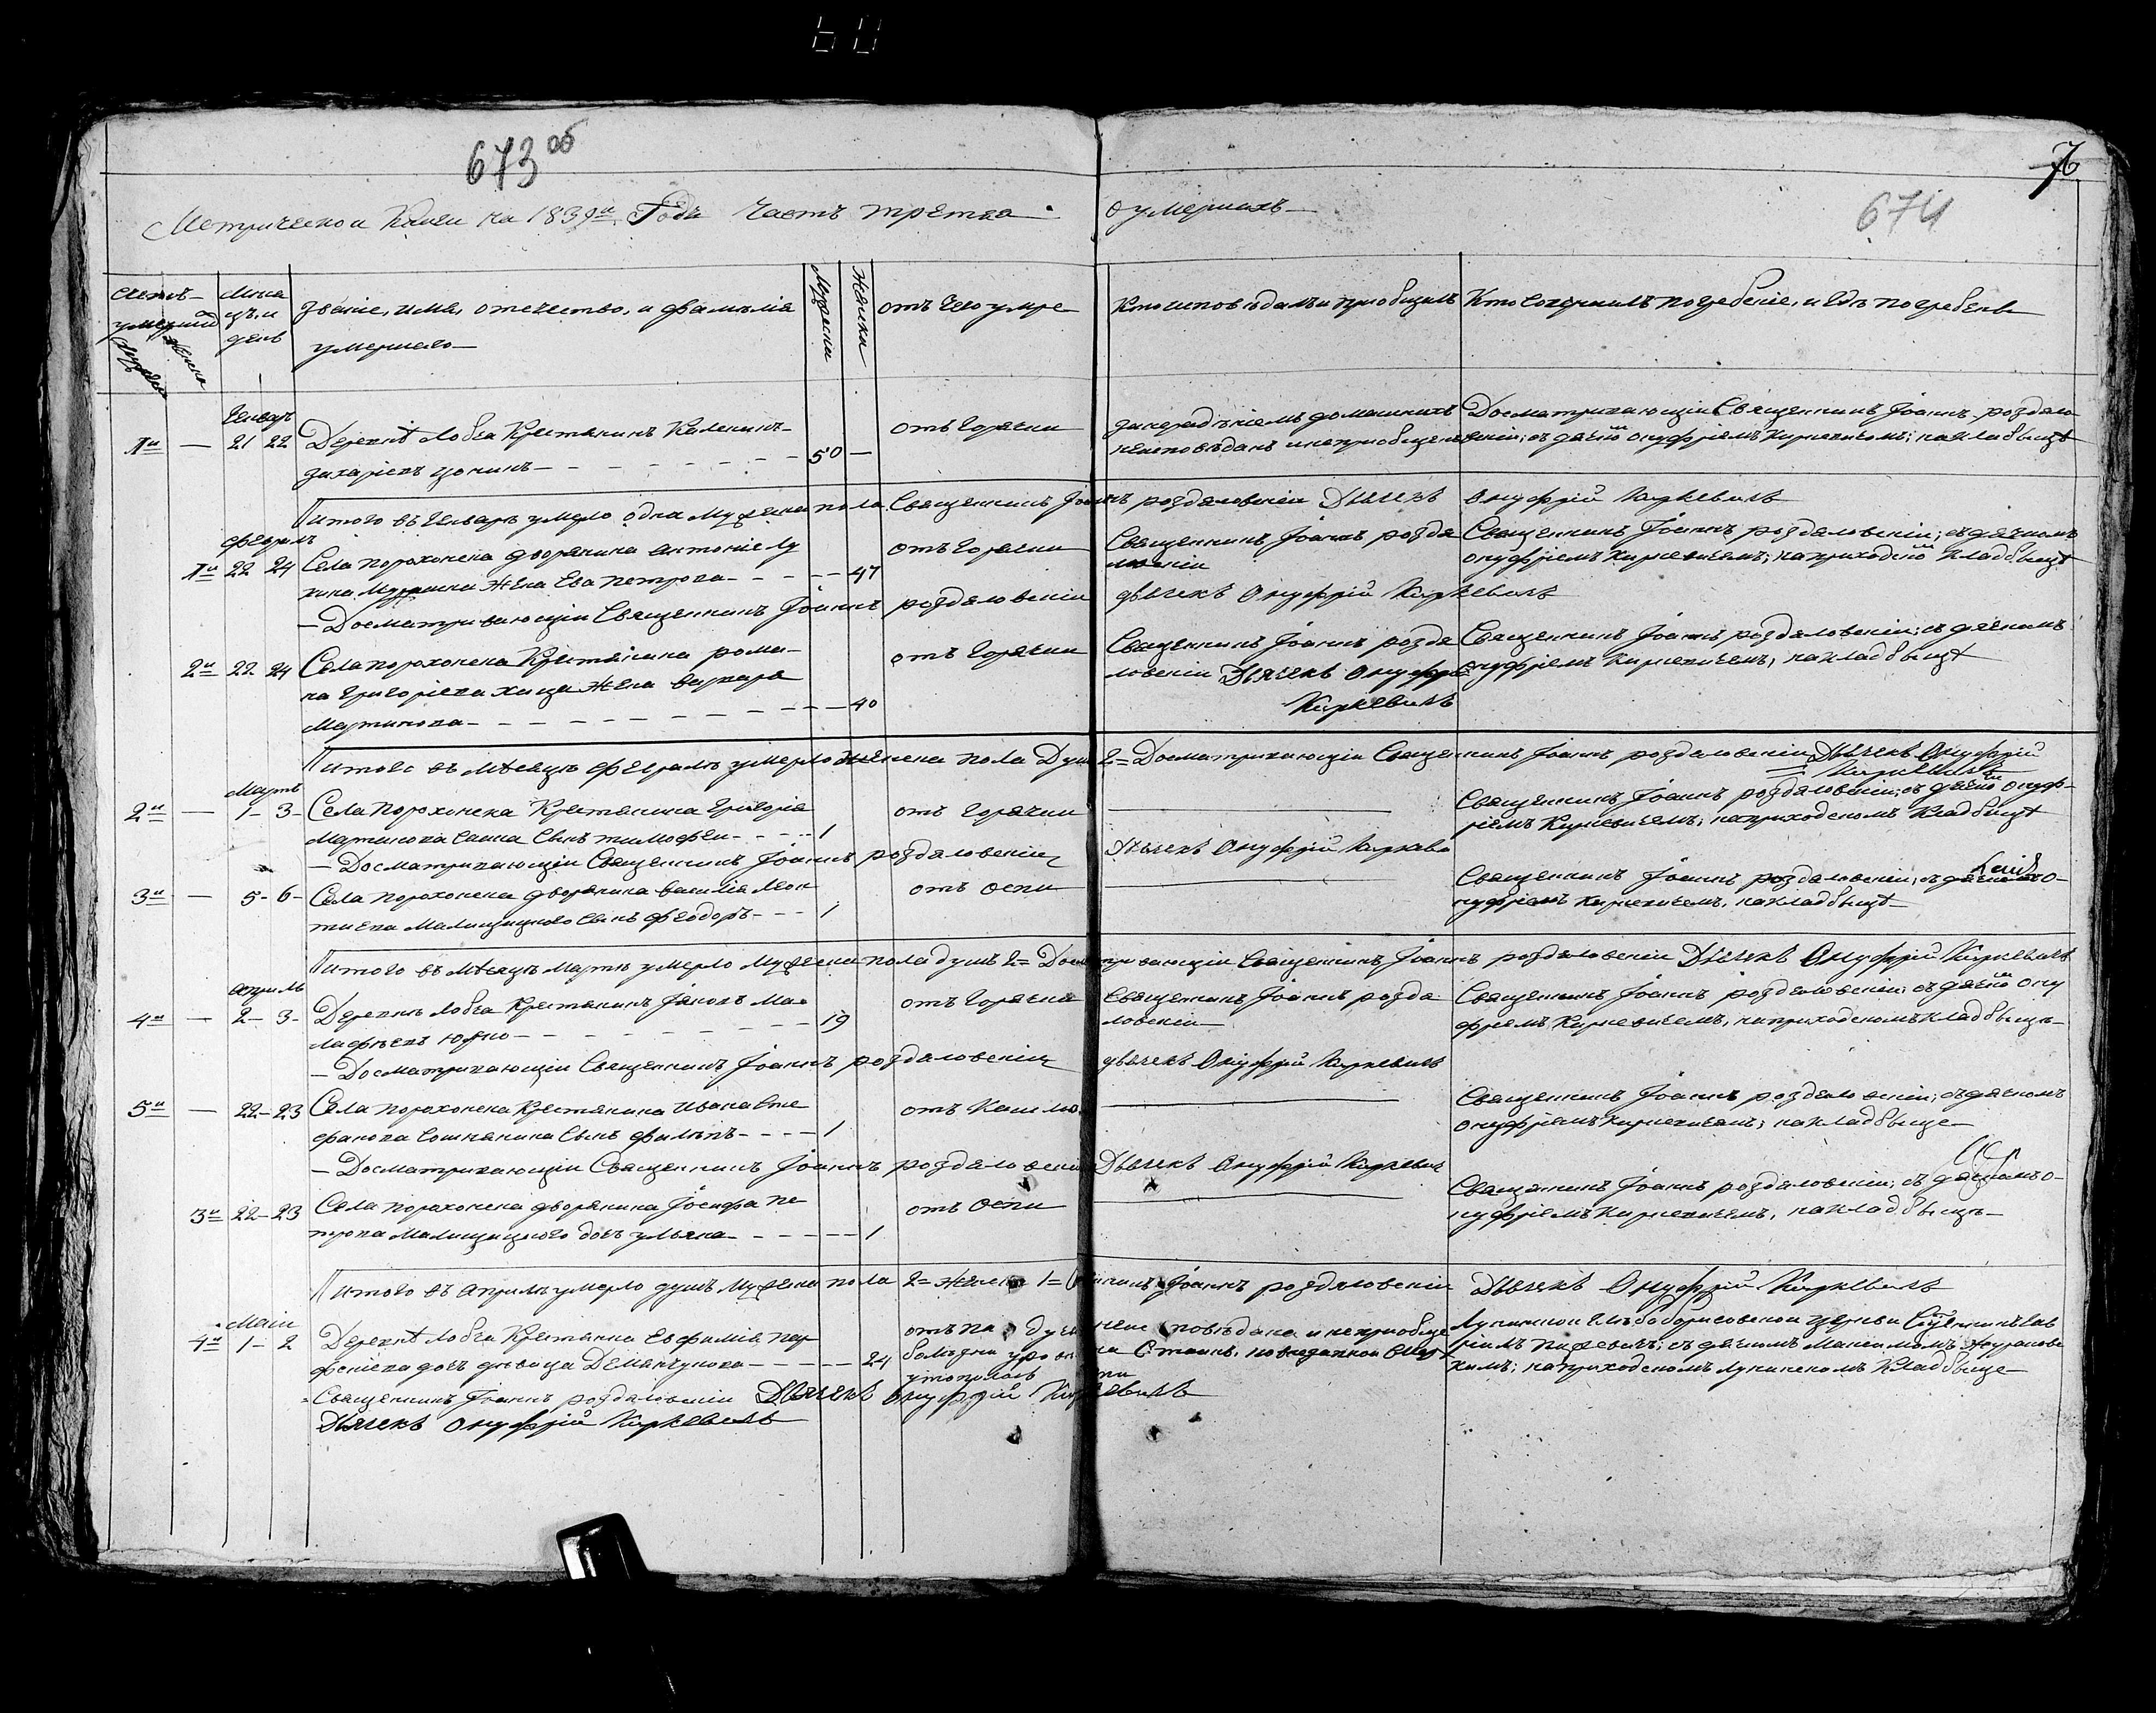 60
673 об
76
674
Метрической Книги на 1839й Годъ Часть третяя
о умершихъ
Счетъ умершихъ
Мужеска
Женска
Мѣся
цъ и
день
званіе, имя, отечество, и фамилія
умершаго
Мужеска
Женска
отъ чего умре
Кто исповѣдалъ и пріобщилъ
Кто Совершилъ погребеніе, и Гдѣ погребенъ
Генваръ
1й — 21 22
Деревнѣ Лобча Крестянинъ Каленикъ
Захаріевъ 50 —
отъ Горячки
за нерадѣніемъ домашнихъ
неисповѣданъ и непріобщенъ
Досматривающіи Священникъ Іоаннъ роздяло
вскіи; съ дячко Онуфріемъ Киркевичемъ; на кладбищѣ
Итого въ Генваръ умерло одна Мужеска пола Священникъ Іоаннъ роздяловскіи Дьячекъ Онуфрій Киркевичъ
Февраль
1й 22 24
Села порохонска дворянина Антоніе Лу
кина жена Ева петрова 47
отъ Горячки
Священникъ Іоаннъ роздя
ловскіи
Священникъ Іоаннъ роздяловскіи; съ дячкомъ
Онуфріемъ Киркевичемъ; на приходско кладбищѣ
— Досматривающіи Священникъ Іоаннъ роздяловскіи дьячекъ Онуфрій Киркевичъ
2й 22 24
Села порохонска Крестянина рома
на Григоріева жена варвара
Мартинова 40
отъ Горячки
Священникъ Іоаннъ роздя
ловскіи Дьячекъ Онуфрій
Киркевичъ
Священникъ Іоаннъ роздяловскіи; съ дячкомъ
Онуфріемъ Киркевичемъ, на кладбищѣ
Итого въ Мѣсяцѣ Февралѣ умерло Женска пола Душъ 2 = Досматривающіи Священникъ Іоаннъ роздяловскіи Дьячекъ Онуфрій
Киркевичъ
Мартъ
2й — 1 - 3
Села порохонска Крестянина Григорія
Мартинова Сынъ тимофеи 1
отъ Горячки
Священникъ Іоаннъ роздяловскіи; съ дячко Онуф
ріемъ Киркевичемъ; на приходскомъ Кладбищѣ
— Досматривающіи Священникъ Іоаннъ роздяловскіи Дьячекъ Онуфрій
3й — 5 - 6
Села порохонска дворянина василія Леон
тиева Малищицкого Сынъ Феодоръ 1
отъ оспи
Священникъ Іоаннъ роздяловскіи; съ О
нуфріемъ Киркевичемъ, на кладбищѣ
Итого въ Мѣсяцѣ Мартѣ умерло Мужеска пола душъ 2 = Досматривающіи Священникъ Іоаннъ роздяловскіи Дьячекъ Онуфрій Киркевичъ
Априль
4й — 2 - 3
Деревнѣ Лобча Крестянинъ Іяковъ Ма
19
отъ Горячки
Священникъ Іоаннъ роздя
ловскіи
Священникъ Іоаннъ роздяловскіи; съ дячко Ону
фріемъ Киркевичемъ, на приходскомъ кладбищѣ
— Досматривающіи Священникъ Іоаннъ роздяловскіи дьячекъ Онуфрій Киркевичъ
5й — 22 - 23
Села порохонска Крестянина Ивана Сте
фанова Сынъ Филипъ 1
отъ Кашлю
Священникъ Іоаннъ роздяловскіи; съ дячкомъ
Онуфріемъ Киркевичемъ; на кладбище
— Досматривающіи Священникъ Іоаннъ роздяловскіи Дьячекъ Онуфрій Киркевичъ
3й 22 - 23
Села порохонска дворянина Іосифа пе
трова Малищицкого дочь ульяна 1
отъ оспи
Священникъ Іоаннъ роздяловскіи, съ дячкомъ О
нуфріемъ Киркевичемъ, на кладбищѣ
Итого въ Априлѣ умерло душъ Мужеска пола 2 = Женска 1 = Іоаннъ роздяловскіи Дьячекъ Онуфрій Киркевичъ
Маіи
4й 1 - 2
Деревнѣ Лобча Крестянка Евфимія пар
феніева дочь дѣвица Деманчукова 24
отъ па дуч
болѣзни
утопилась
неисповѣдана и непріобще
на
Лунинской Борисовской церкви Священникъ
съ дячкомъ Максимомъ
на приходскомъ Лунинскомъ Кладбище
Священникъ Іоаннъ роздяловскіи Дьячекъ Онуфрій Киркевичъ
Дьячекъ Онуфрій Киркевичъ